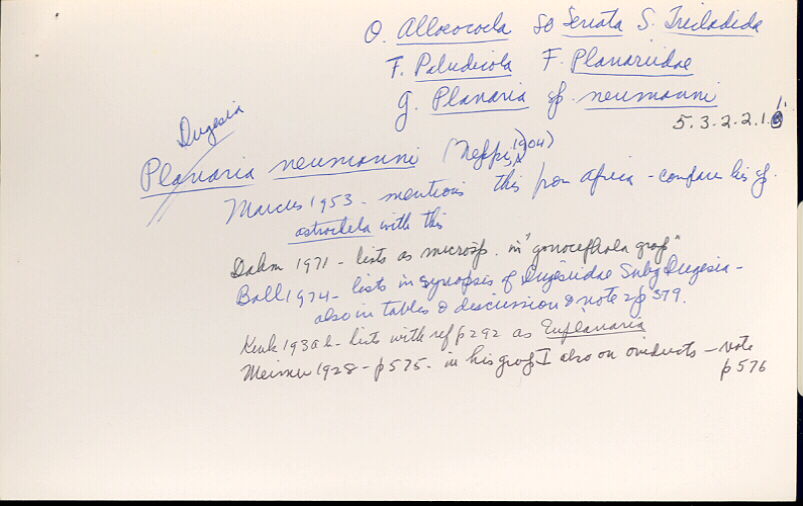 O. Alloeocoela SO Seriata S. Tricladida
F. Paludicola F. Planariidae
g. Planaria sp. neumanni
5.3.2.2.1.
Dugesia
Planaria neumanni (Neppi, 1904)
Marcus 1953 - mentions this from Africa - compare his sp.
astrocheta with this
Dahm 1971 - lists as microsp. in "gonocephala group"
Ball 1974 - lists in synopsis of Dugesiidae Subg Dugesia -
also in tables & discussion & note 2 p 379.
Kenk 1930 - lists with ref p 292 as Euplanaria
Meixner 1928 - p 575 - in his group I also on oviducts - note
p 576